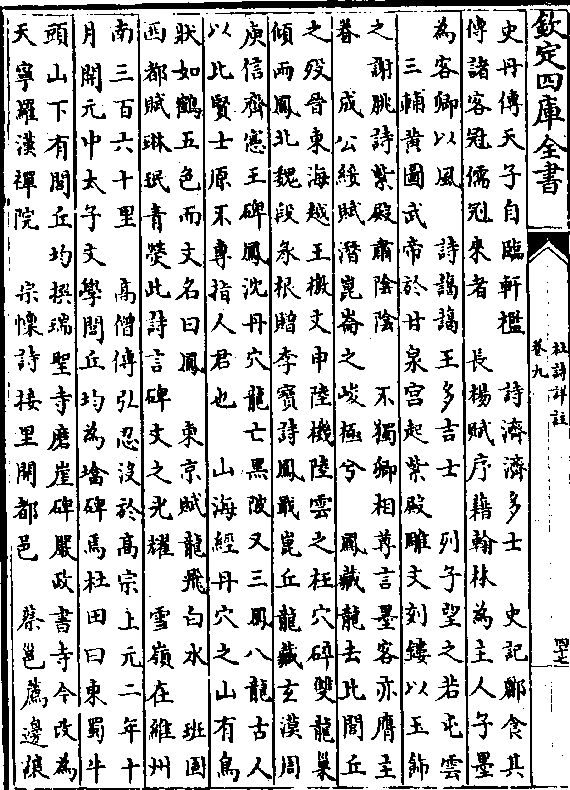 欽定四庫全書
杜詩詳註
卷九
四十七
史丹傳天子自臨軒檻　詩濟濟多士　史記酈食其
傳諸客冠儒冠來者　長楊賦序藉翰林為主人子墨
為客卿以風　詩藹藹王多吉士　列子望之若屯雲
三輔黃圖武帝於甘泉宫起紫殿雕文刻鏤以玉飾
之謝朓詩紫殿肅陰陰　不獨卿相尊言墨客亦膺主
眷　成公綏賦潛崑崙之峻極兮　鳳藏龍去比閭丘
之歿晉東海越王檄文申陸機陸雲之枉穴碎雙龍巢
傾兩鳳北魏段永根贈李寶詩鳳戢崑丘龍藏玄漠周
庾信齊憲王碑鳳沈丹穴龍亡黑陂又三鳳八龍古人
以比賢士原不專指人君也　山海經丹穴之山有鳥
狀如鶴五色而文名曰鳳　東京賦龍飛白水　班固
西都賦琳珉青熒此詩言碑文之光耀　雪嶺在維州
南三百六十里　高僧傳弘忍沒於高宗上元二年十
月開元中太子文學閭丘均為塔碑焉杜田曰東蜀牛
頭山下有閭丘均撰瑞聖寺磨崖碑嚴政書寺今改為
天寧羅漢禪院　宗懍詩接里開都邑　蔡邕薦邊讓